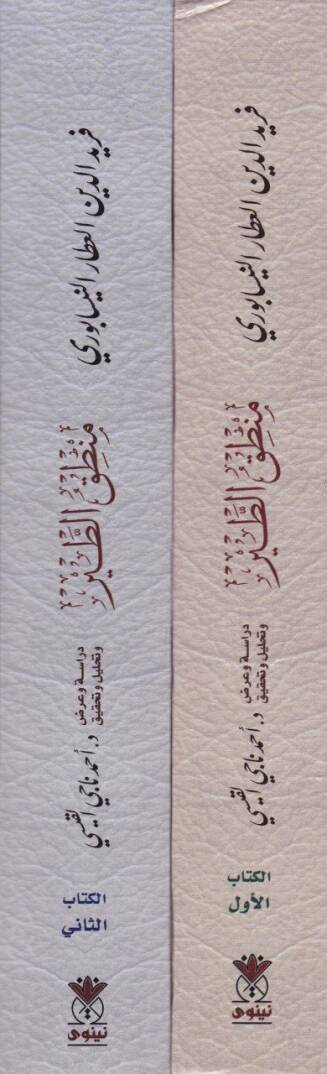 فريد الدين العطار النيسابوري
منطق الطير
دراسة وعرض
وتحليل وتحقيق
د. أحمد ناجي القيسي
الكتاب
الأول
نينوى
فريد الدين العطار النيسابوري
منطق الطير
دراسة وعرض
وتحليل وتحقيق
د. أحمد ناجي القيسي
الكتاب
الثاني
نينوى